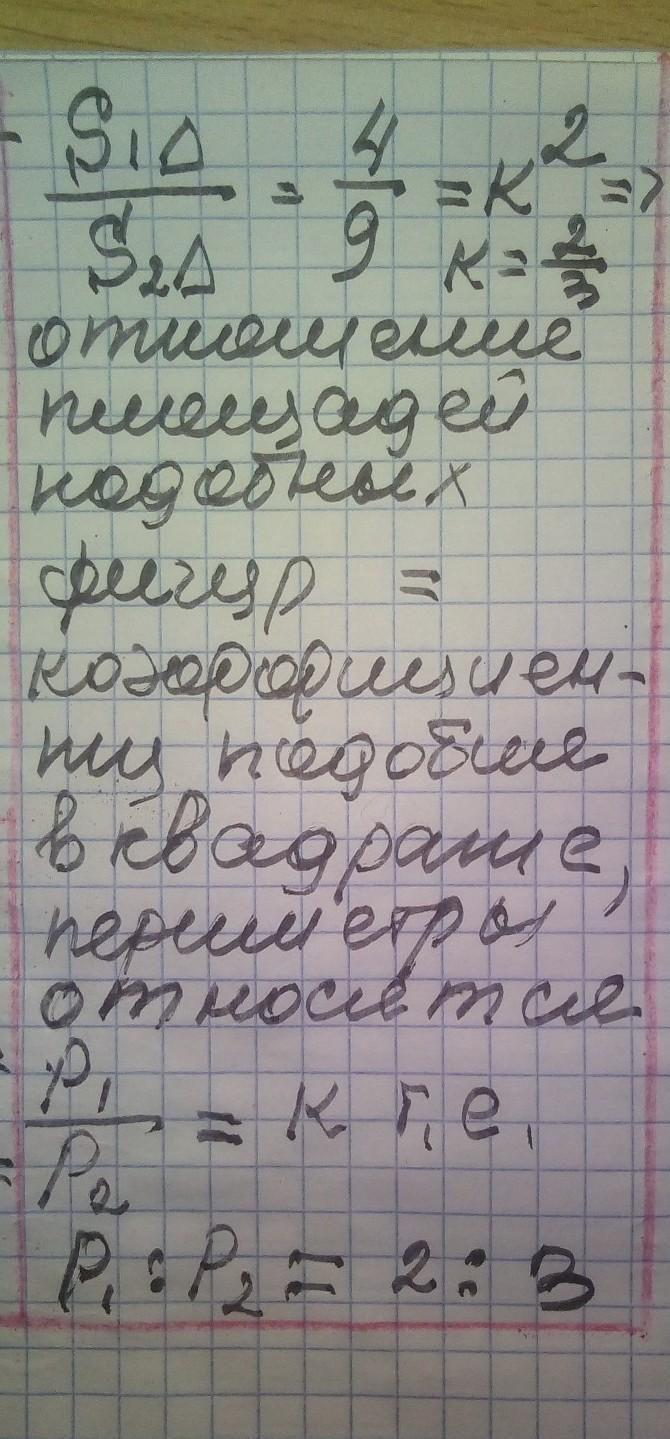 S₁Δ / S₂Δ = 4/9 = к² =>
к = 2/3
отношение
площадей
подобных
фигур =
коэффициен-
ту подобия
в квадрате,
периметры
относятся
P₁ / P₂ = к т.е.
P₁ : P₂ = 2 : 3